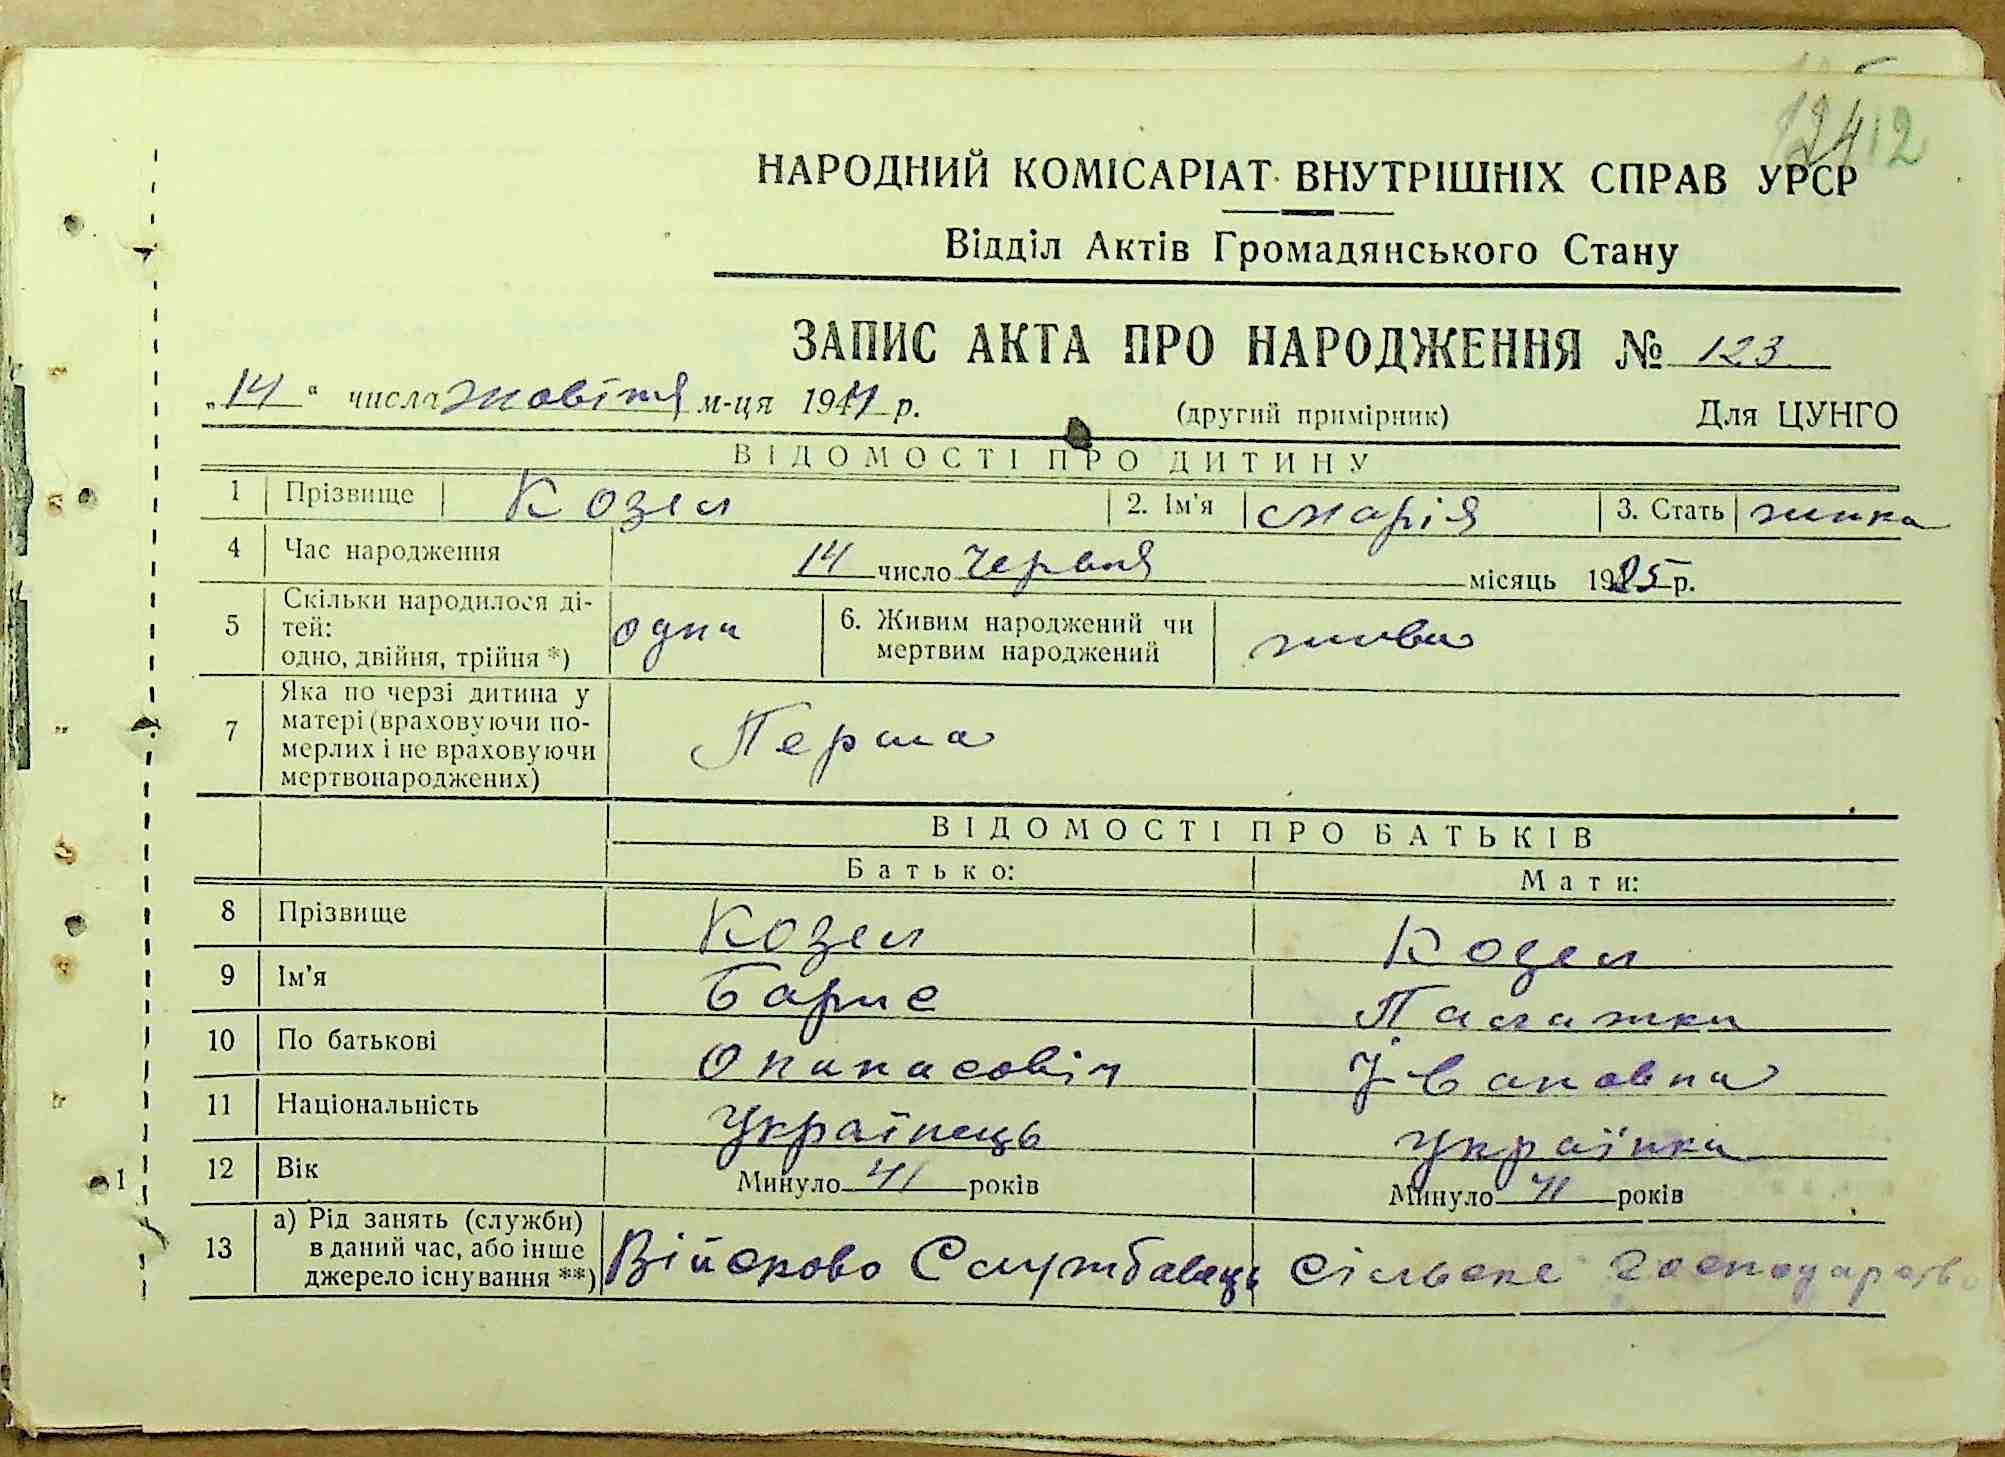 12412
НАРОДНИЙ КОМІСАРІАТ ВНУТРІШНІХ СПРАВ УРСР
Відділ Актів Громадянського Стану
ЗАПИС АКТА ПРО НАРОДЖЕННЯ № 123
„14“ числа жовтня м-ця 1944 р. (другий примірник) Для ЦУНГО
ВІДОМОСТІ ПРО ДИТИНУ
1 Прізвище Козел 2. Ім'я Марія 3. Стать жинка
4 Час народження 14 число Червня місяць 1925 р.
5 Скільки народилося ді-
тей:
одно, двійня, трійня *) одна 6. Живим народжений чи
мертвим народжений жива
7 Яка по черзі дитина у
матері (враховуючи по-
мерлих і не враховуючи
мертвонароджених) Перша
ВІДОМОСТІ ПРО БАТЬКІВ
Батько: Мати:
8 Прізвище Козел Козел
9 Ім'я Барис Палажка
10 По батькові Опанасовіч Івановна
11 Національність Українець Українка
12 Вік Минуло 41 років Минуло 41 років
13 а) Рід занять (служби)
в даний час, або інше
джерело існування **) Війсково Службовець Сільське господарство
1